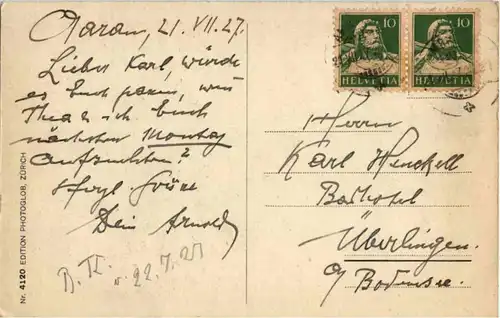 Aarau, 21. VII. 27.
Lieber Karl, würde
es Euch passen, wenn
Thea & ich Euch
nächsten Montag
aufsuchten?
Hzgl. Grüße
Dein Arnold
22. 7. 27
Nr. 4120 EDITION PHOTOGLOB, ZÜRICH
10 10
HELVETIA HELVETIA
Herrn
Karl Henckell
Badhotel
Überlingen
a/ Bodensee.